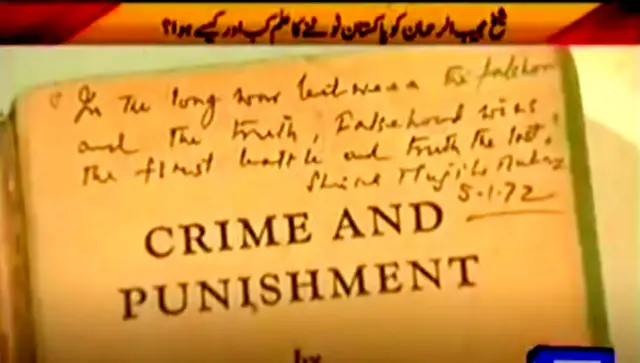 شیخ مجیب الرحمان کو پاکستان ٹوٹنے کا علم کب اور کیسے ہوا؟
In the long war between the falshood
and the truth, Falsehood wins
the first battle and truth the last.
Sheikh Mujibur Rahman
5.1.72
CRIME AND
PUNISHMENT
by